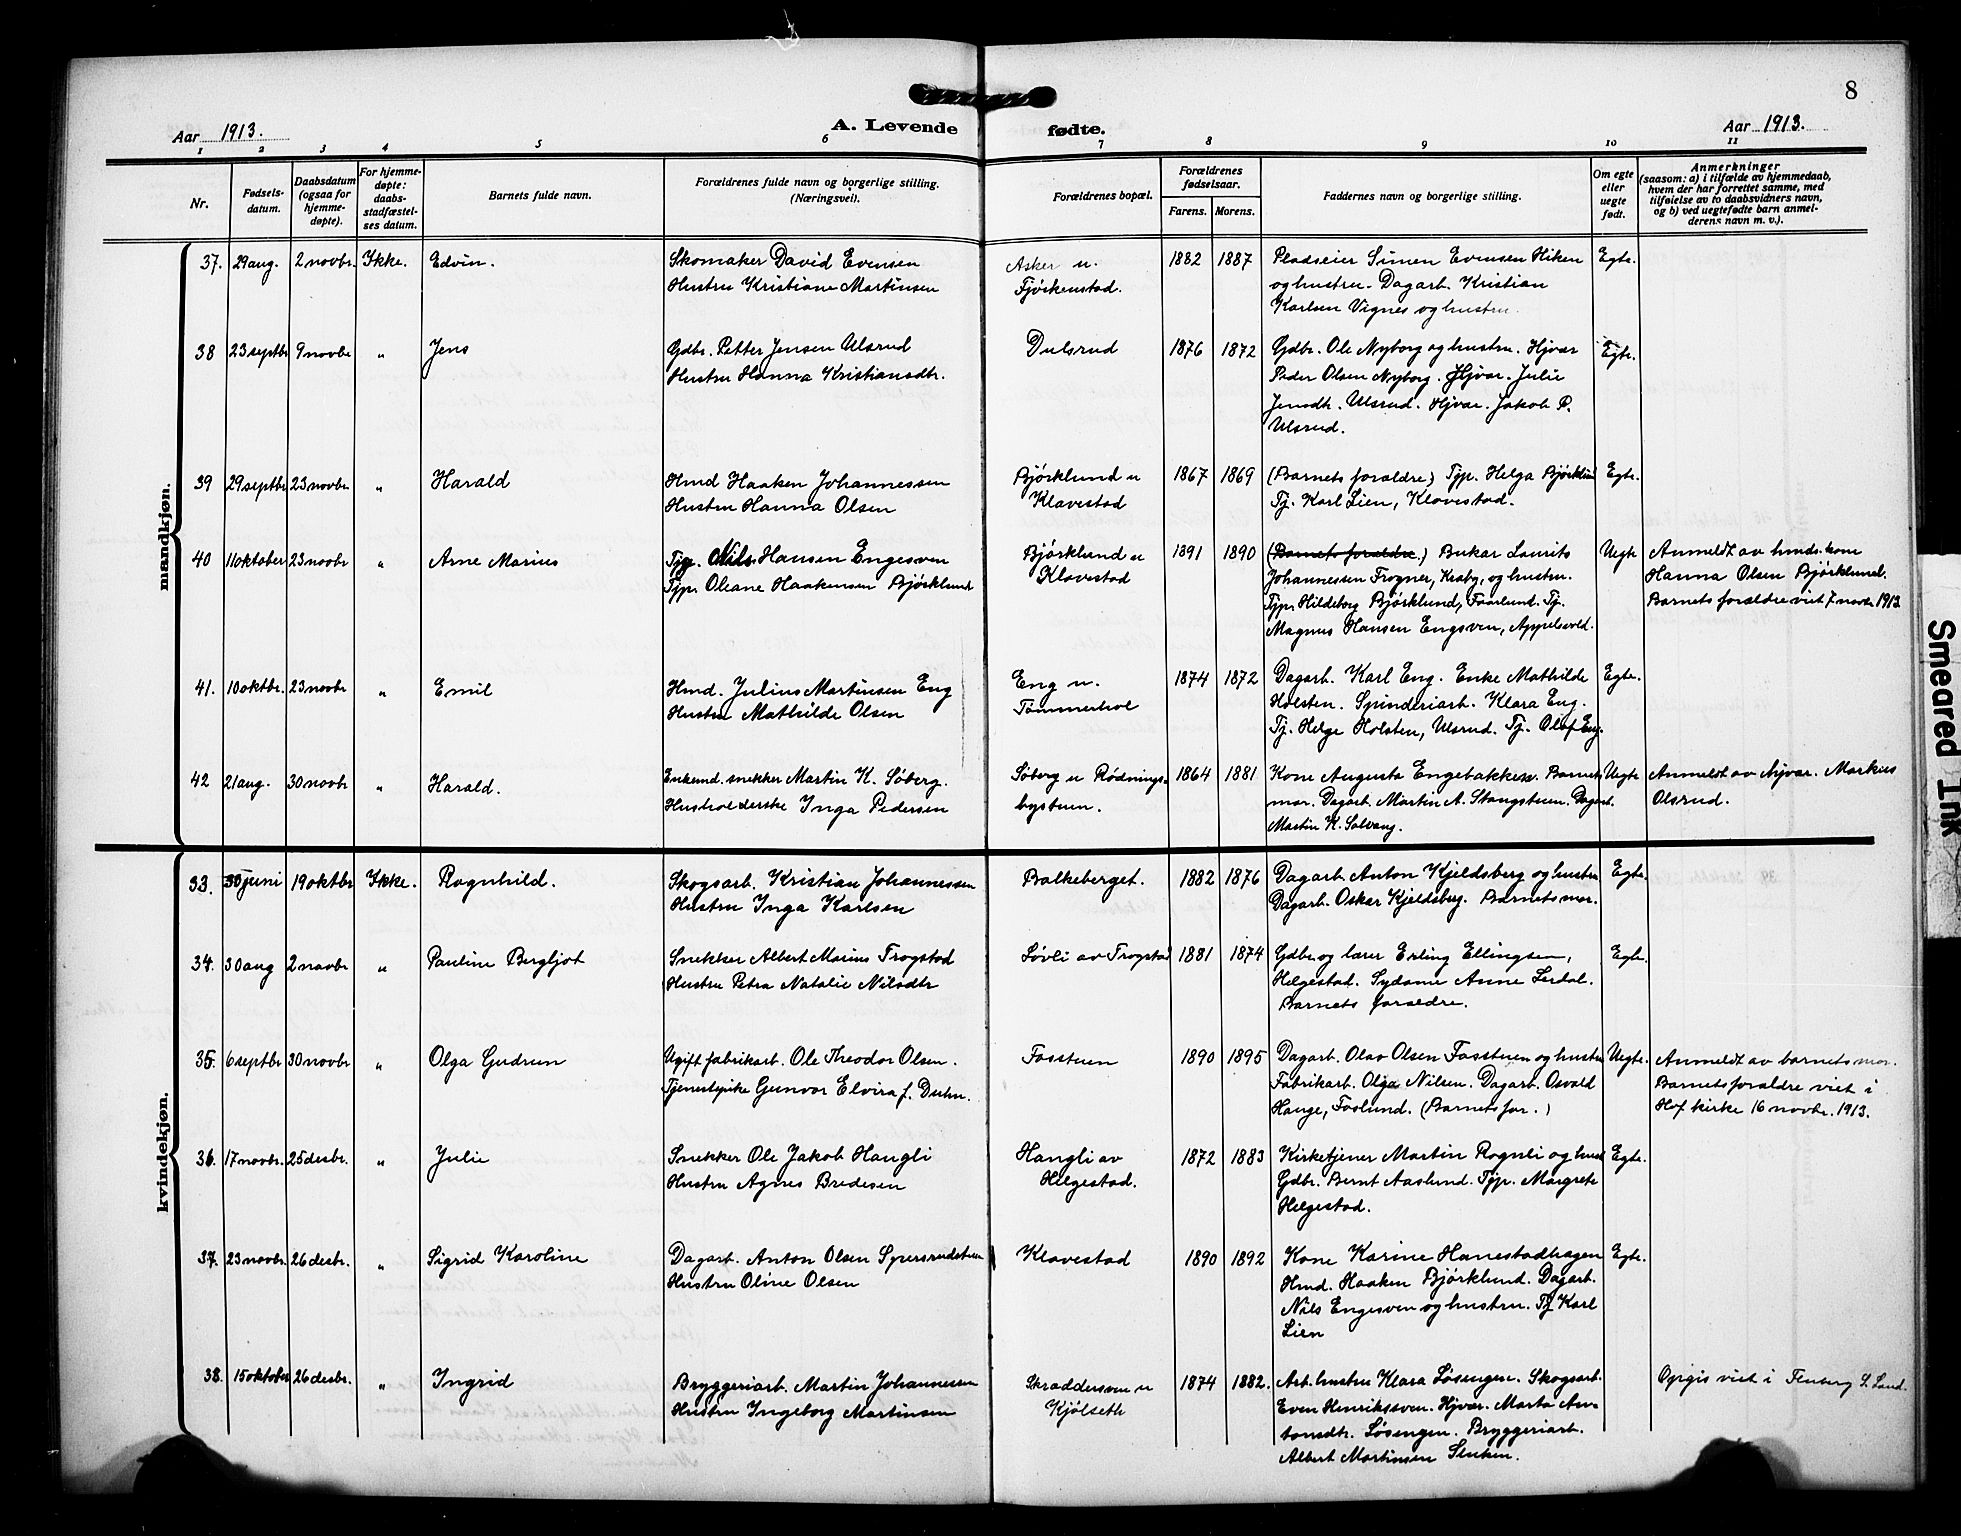 8
Aar 1913.
A. Levende fødte.
Aar 1913.
1 2 3 4 5 6 7 8 9 10 11
Nr.
Fødsels-
datum.
Daabsdatum
(ogsaa for
hjemme-
døpte).
For hjemme-
døpte:
daabs-
stadfæstel-
ses datum.
Barnets fulde navn.
Forældrenes fulde navn og borgerlige stilling.
(Næringsvei).
Forældrenes bopæl.
Forældrenes
fødselsaar.
Farens. Morens.
Faddernes navn og borgerlige stilling.
Om egte
eller
uegte
født.
Anmerkninger
(saasom: a) i tilfælde av hjemmedaab,
hvem der har forrettet samme, med
tilføielse av to daabsvidners navn,
og b) ved uegtefødte barn anmel-
derens navn m. v.).
mandkjøn.
37. 29 aug. 2 novbr. Ikke. Edvin.
Skomaker David Evensen
Hustru Kristiane Martinsen
Asker u.
Fjøskenstad.
1882 1887
Pladseier Simen Evensen Hiken
og hustru. Dagarb. Kristian
Karlsen Vignes og hustru.
Egte.
38 23 septbr 9 novbr " Jens
Gdbr. Petter Jensen Ulsrud
Hustru Hanna Kristiansdtr.
Dulsrud
1876 1872
Gdbr. Ole Nyborg og hustru. Hjvar
Peder Olsen Nyborg. Hjvar. Julie
Jensdtr. Ulsrud. Hjvar. Jakob P.
Ulsrud.
Egte.
39 29 septbr 23 novbr " Harald
Hmd Haaken Johannessen
Hustru Hanna Olsen
Bjørklund u
Klavestad
1867 1869
(Barnets forældre) Typ. Helga Bjørklund
Tj. Karl Lien, Klavestad.
Egte.
40 11 oktober 23 novbr " Arne Marius
Nils Hansen Engesven
Typ. Oleane Haakensen Bjørklund
Bjørklund u
Klavestad
1891 1890
(Barnets forældre.) Bukar Laurits
Johannessen Frogner, Kraby, og hustru.
Typ. Hildeborg Bjørklund, Faarlund. Tj.
Magnus Hansen Engsven, Appelsvold.
Uegte
Anmeldt av husds. kone
Hanna Olsen Bjørklund.
Barnets forældre viet 7 novbr 1913
41. 10 oktbr. 23 novbr " Emil
Hmd. Julius Martinsen Eng
Hustru Mathilde Olsen
Eng u.
Tømmerhol
1874 1872
Dagarb. Karl Eng. Enke Mathilde
Holsten. Spinderiarb. Klara Eng.
Tj. Helge Holsten, Ulsrud. Tj. Olaf Eng.
Egte.
42 21 aug. 30 novbr " Harald.
Enkemd. snekker Martin K. Søberg.
Husholderske Inga Pedersen
Søberg u Rødnings-
bystuen.
1864 1881
Kone Augusta Engebakken. Barnets
mor. Dagarb. Martin A. Stangstuen. Dagarb.
Martin K. Solvang.
Uegte
Anmeldt av Hjvar. Markus
Olsrud.
kvindekjøn.
33. 30 juni 19 oktbr Ikke. Ragnhild.
Skogsarb. Kristian Johannessen
Hustru Inga Karlsen
Balkeberget.
1882 1876
Dagarb. Anton Kjeldsberg og hustru
Dagarb. Oskar Kjeldsberg. Barnets mor.
Egte.
34. 30 aug 2 novbr " Pauline Bergljot
Snekker Albert Marius Trogstad
Hustru Petra Natalie Nilsdtr
Løvli av Trogstad
1881 1874
Gdbr. og lærer Erling Ellingsen,
Helgestad. Sydame Anne Lerdal.
Barnets forældre.
Egte.
35. 6 septbr 30 novbr " Olga Gudrun
Ugift fabrikarb. Ole Theodor Olsen.
Tjenestepike Gunvor Elvira f. Duhn.
Fosstuen
1890 1895
Dagarb. Olav Olsen Fosstuen og hustru
Fabrikarb. Olga Nilsen. Dagarb. Osvald
Hauge, Foslund. (Barnets far.)
Uegte.
Anmeldt av barnets mor.
Barnets forældre viet i
Hof kirke 16 novbr. 1913.
36. 17 novbr. 25 desbr. " Julie
Snekker Ole Jakob Haugli
Hustru Agnes Bredesen
Haugli av
Helgestad.
1872 1883
Kirketjener Martin Rognli og hust
Gdbr. Bernt Aaslund. Typ. Margrete
Helgestad.
Egte.
37. 23 novbr. 26 desbr. " Sigrid Karoline
Dagarb. Anton Olsen Spersrudstuen
Hustru Oline Olsen
Klavestad
1890 1892
Kone Karine Hanestadhagen
Hmd. Haaken Bjørklund. Dagarb.
Nils Engesven og hustru. Tj Karl
Lien
Egte.
38. 15 oktober 26 desbr. " Ingrid
Bryggeriarb. Martin Johannessen
Hustru Ingeborg Martinsen
Skræddersven u
Kjølseth
1874 1882.
Arb. hustru Klara Løsengen. Skogsarb.
Even Henrikssven. Hjvar. Marta An-
tonsdtr. Løsengen. Bryggeriarb.
Albert Martinsen Sluken.
Opgis viet i Fluberg S. Land.
Smeared Ink